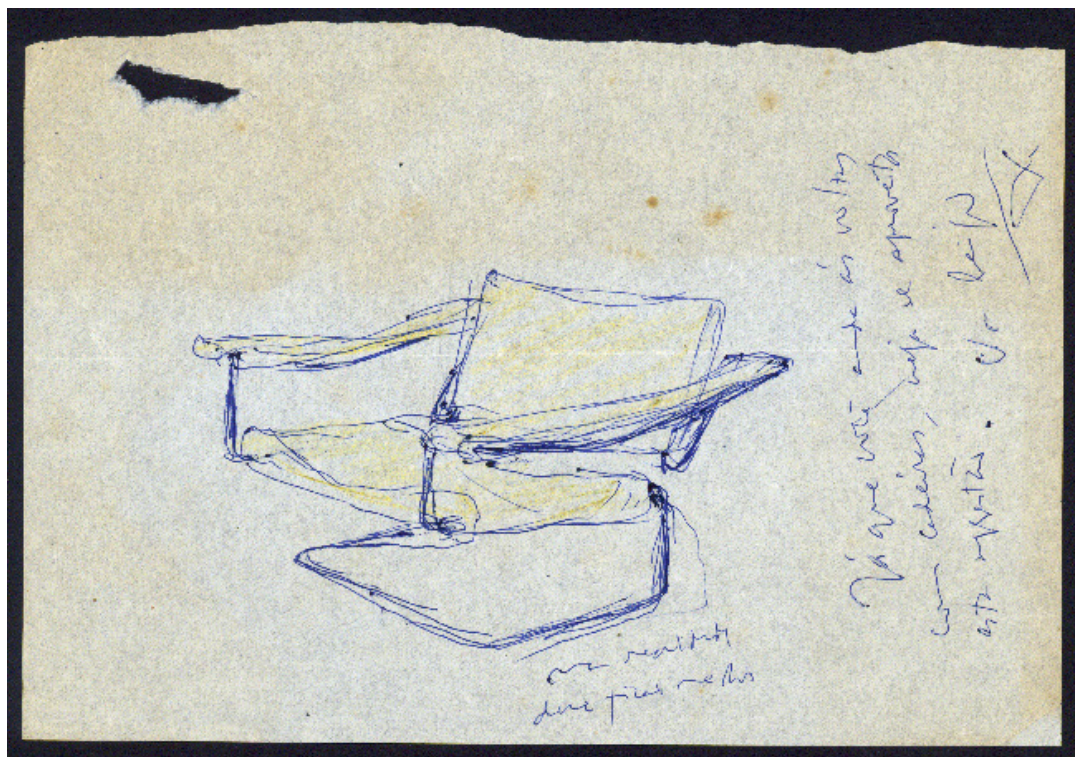 Já que você anda às voltas
com cadeiras, veja se aproveita
esta sugestão.
na realidade
deve ficar melhor